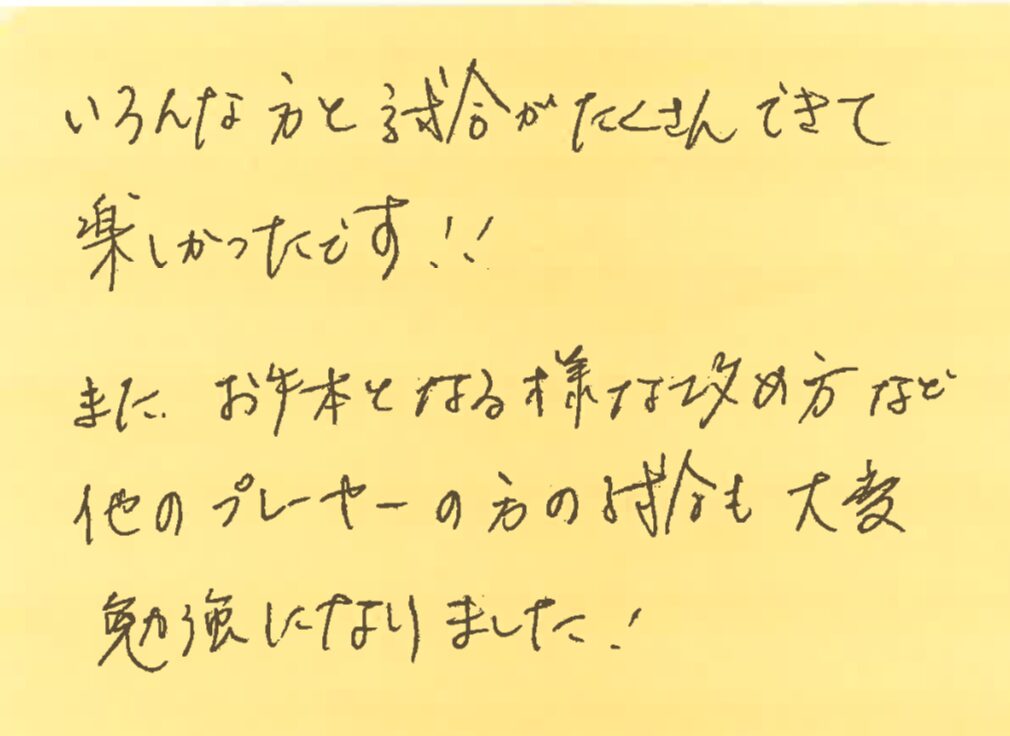 いろんな方と試合がたくさんできて
楽しかったです!!
また、お手本となる様な攻め方など
他のプレーヤーの方の試合も大変
勉強になりました!